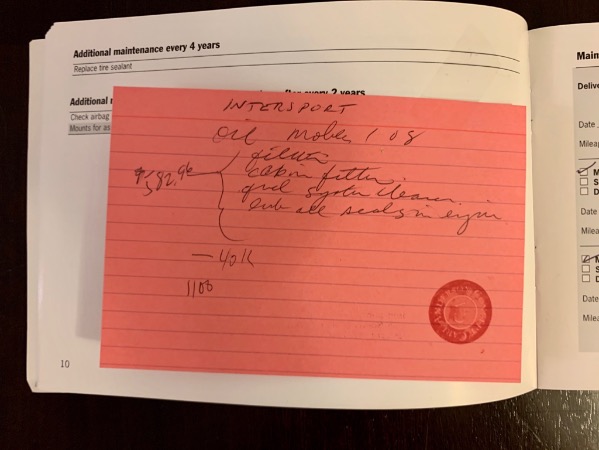 Additional maintenance every 4 years
Replace tire sealant
Additional
2 years
Check airbag
Mounts for as
INTERSPORT
oil Mobil 1 08
filter
cabin filter
fuel system cleaner
lube all seals in engine
582.96
— 40K
1100
10
Main
Delive
Date
Milea
M
S
D
Date
Milea
M
S
D
Date
Milea